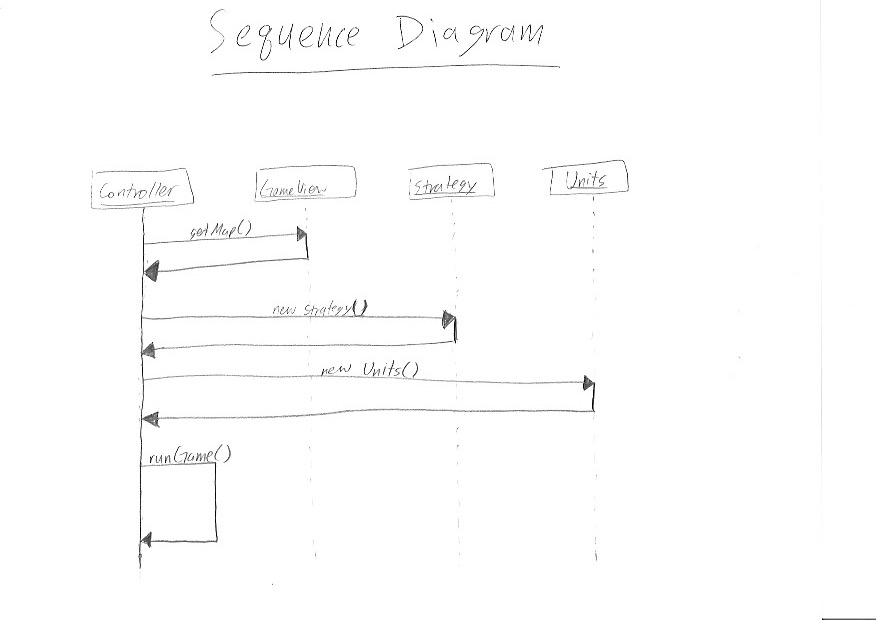 Sequence Diagram
Controller
GameView
Strategy
Units
getMap()
new Strategy()
new Units()
runGame()